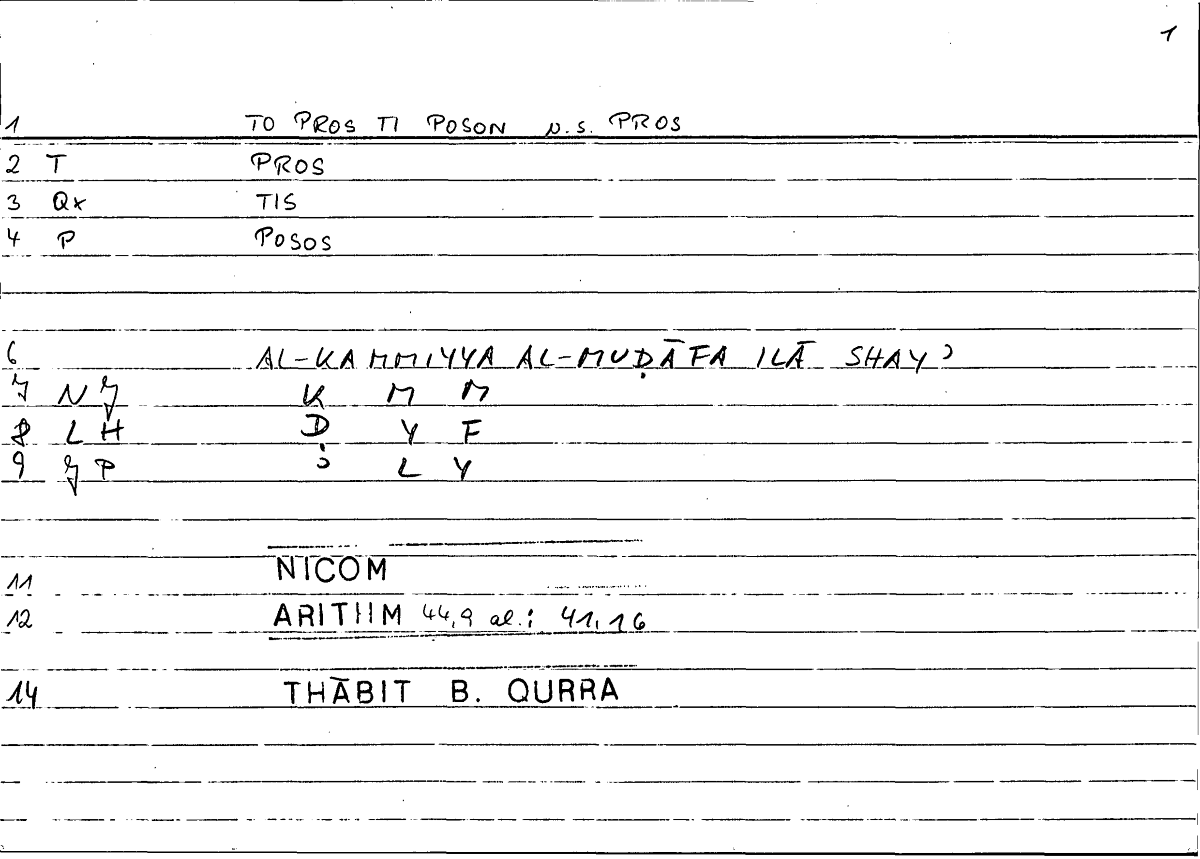 1
1 TO PROS TI POSON n.s. PROS
2 T PROS
3 Qx TIS
4 P POSOS
6 AL-KAMMIYYA AL-MUḌĀFA ILĀ SHAYʾ
7 NJ K M M
8 LH Ḍ Y F
9 JP ʾ L Y
11 NICOM
12 ARITHM 44,9 al.; 41,16
14 THĀBIT B. QURRA